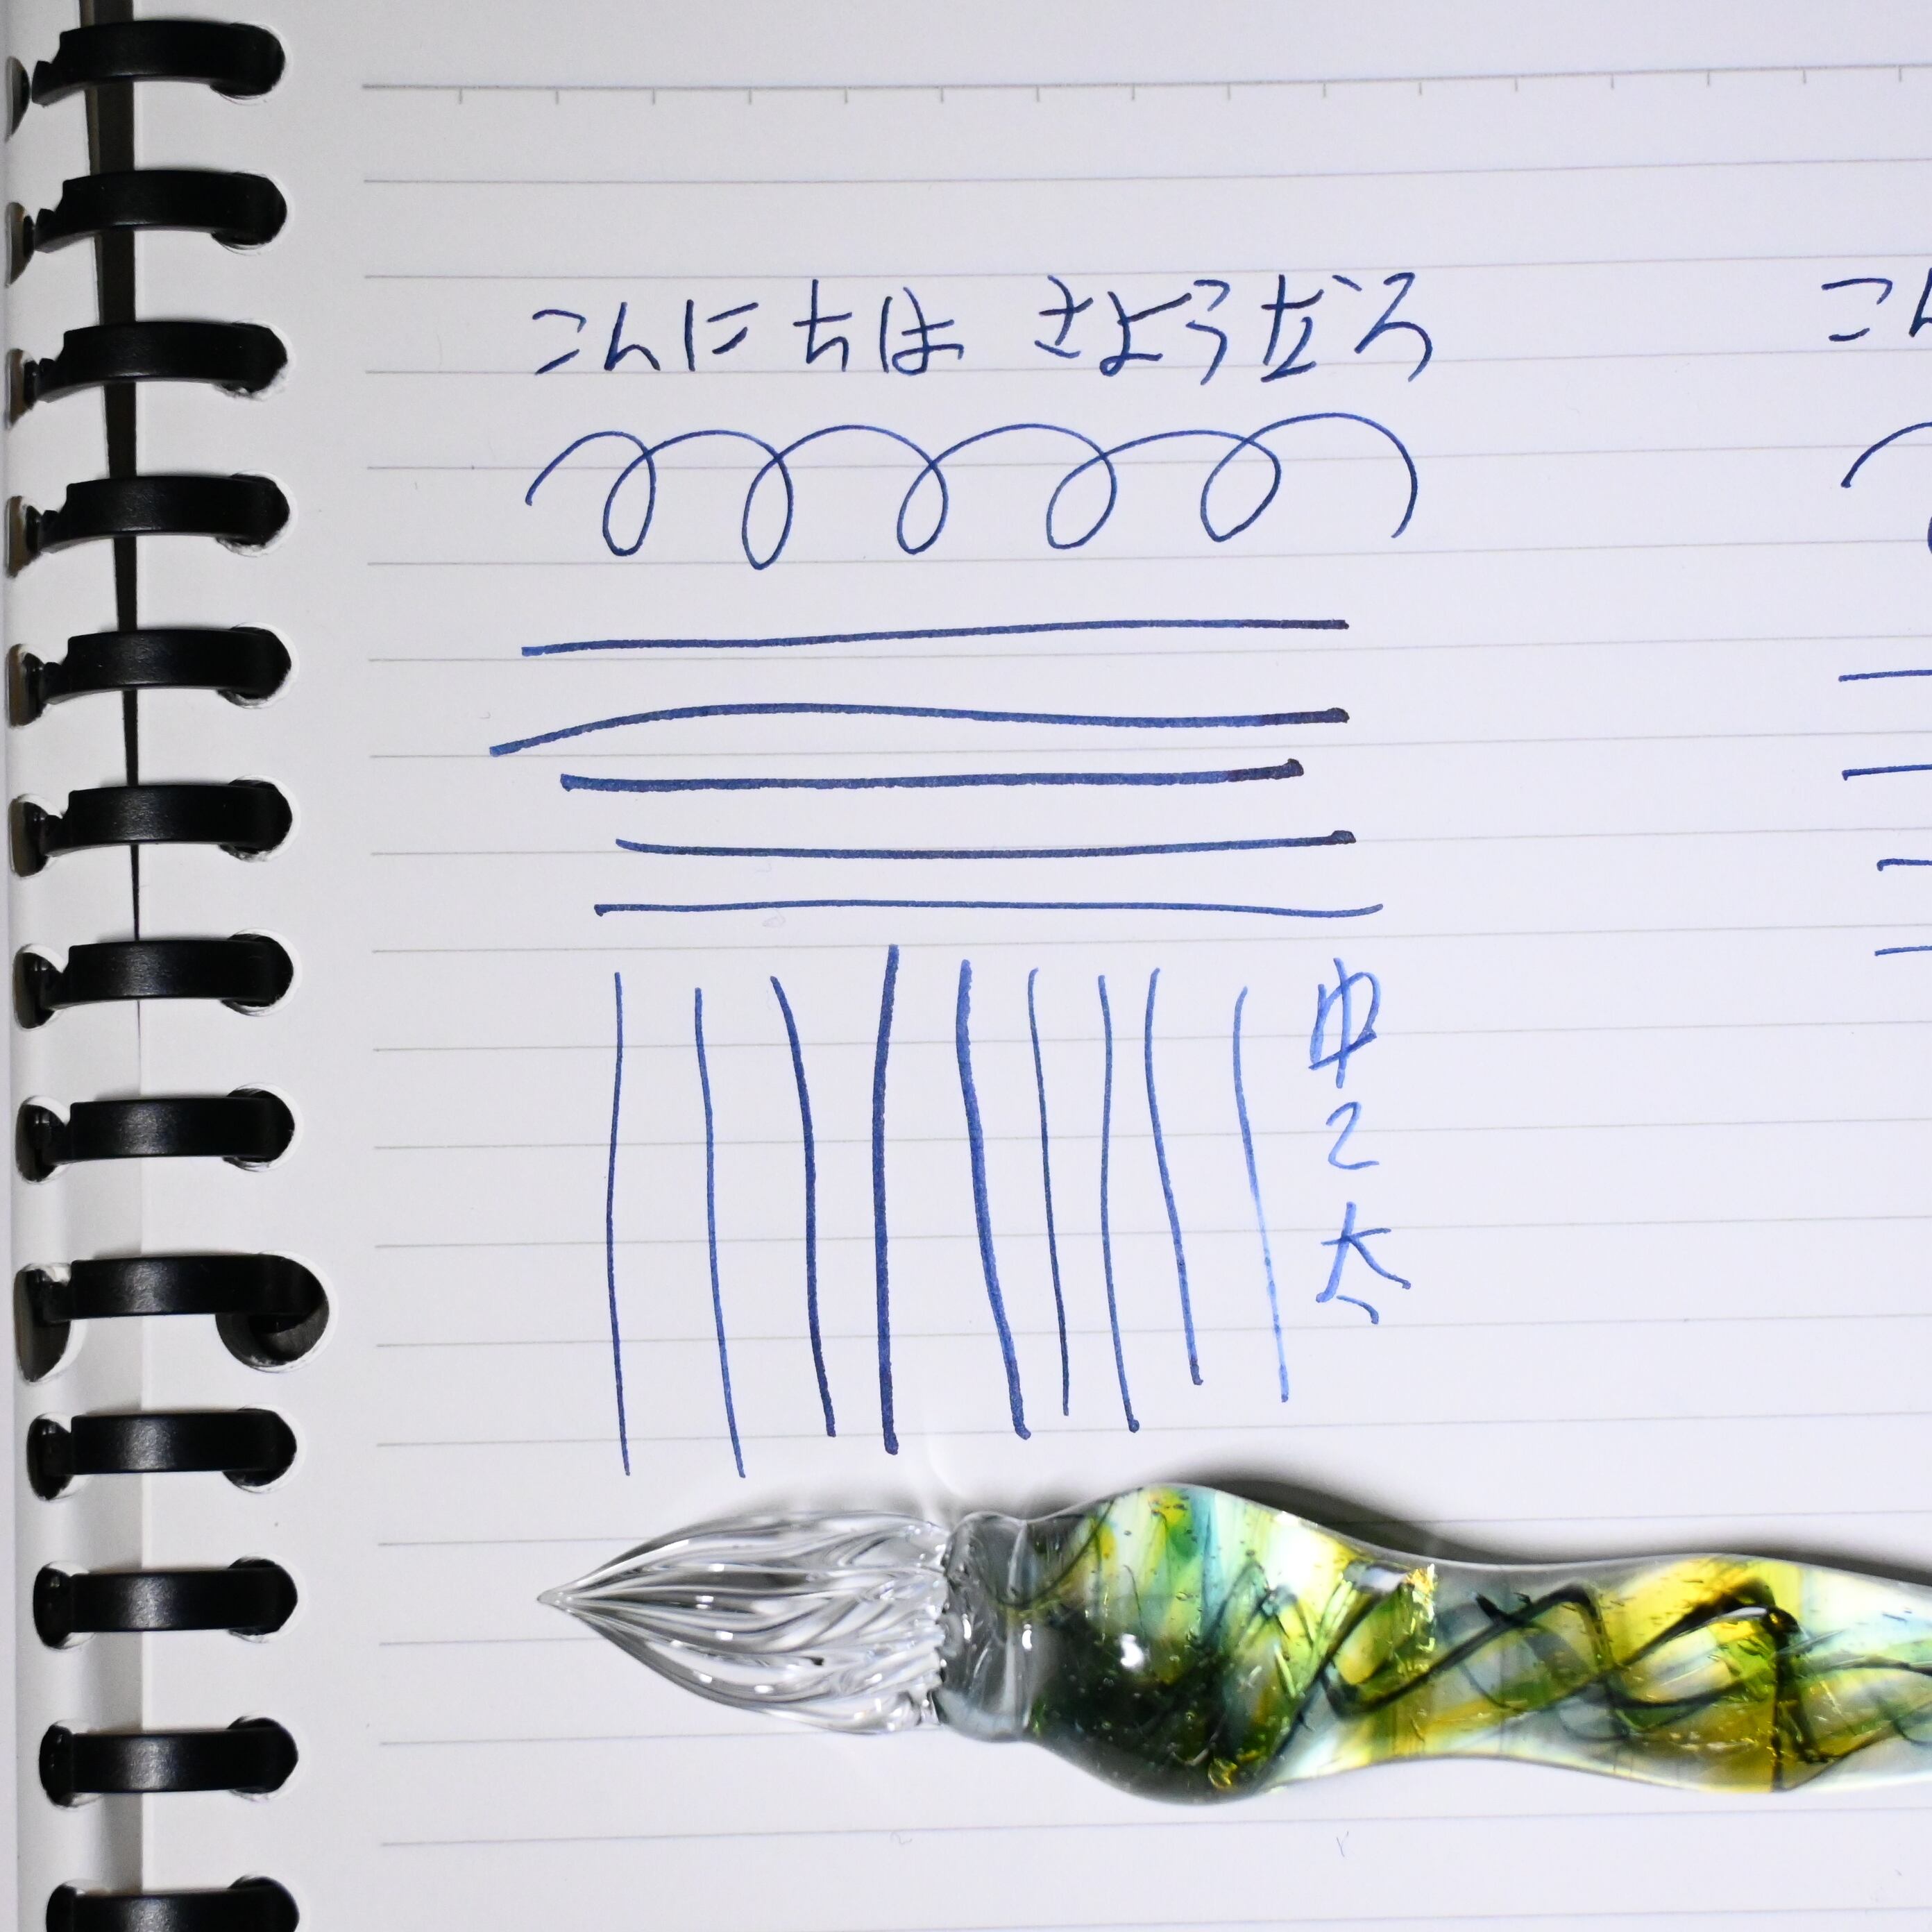 こんにちは さようなら こ
中
2
太